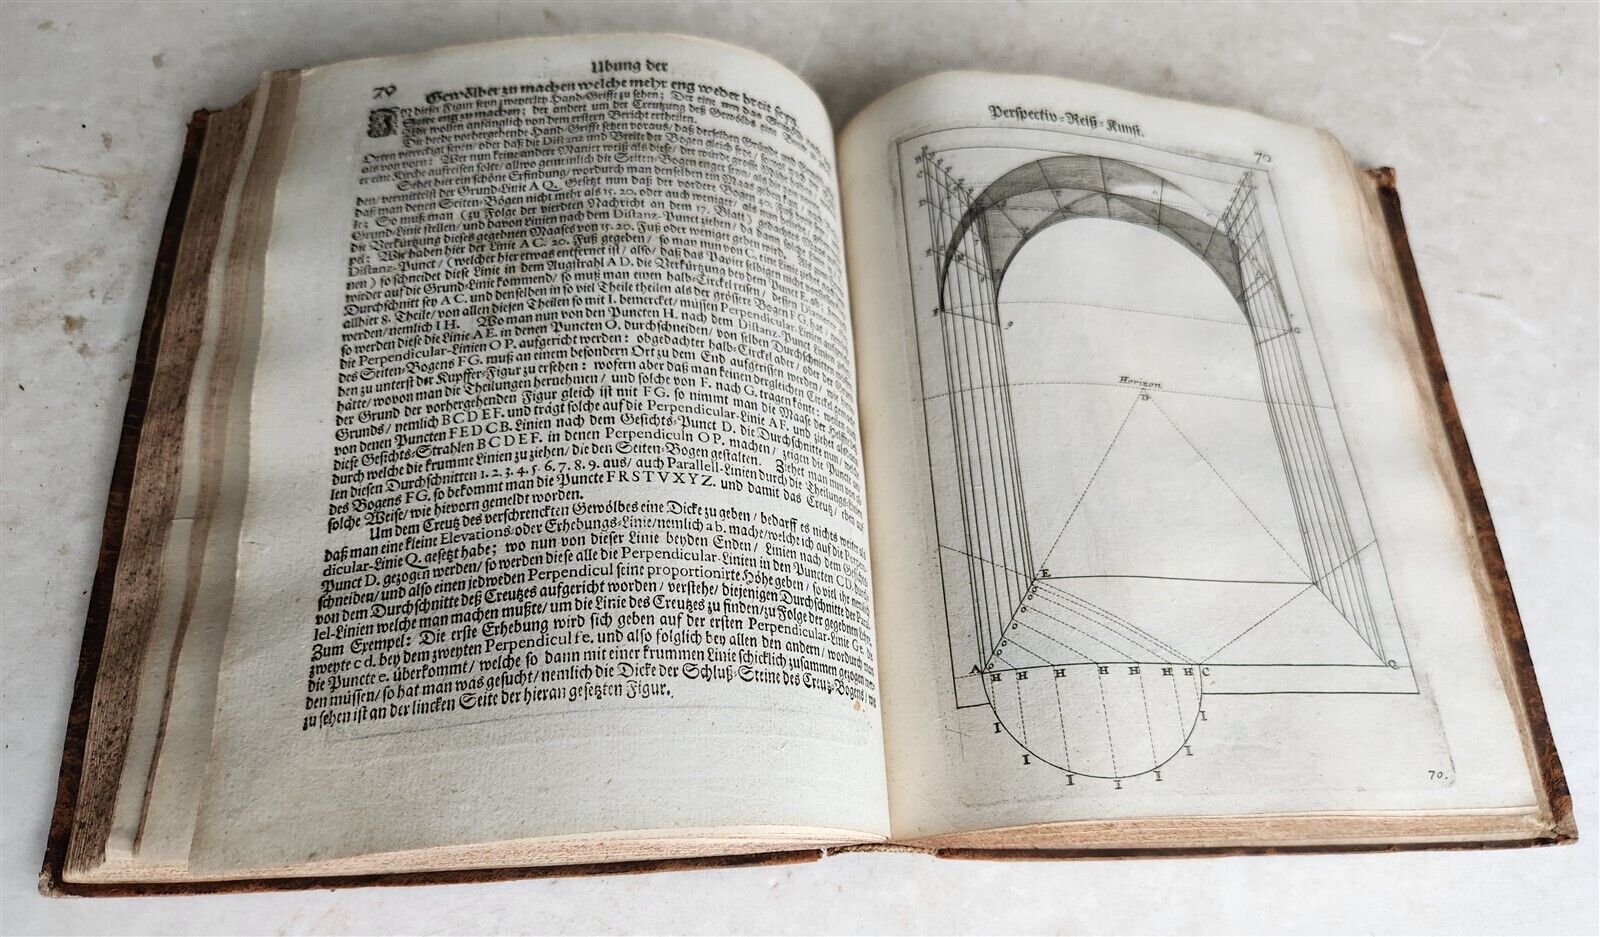 Ubung der
70
Gewölber zu machen welche mehr eng weder breit seyn.
IN dieser Figur seyn zweyerley Hand-Griffe zu sehen; Der eine um das
Seite eng zu machen; der andere um der Creutzung deß Gewölbs eine
Wir wollen anfänglich von dem erstern Bericht ertheilen.
Die beede vorhergehende Hand-Griffe setzen voraus/ daß derselben Gründe
Orten viereckigt seyen/ oder daß die Distanz und Breite der Bogen gleich seye/
als von vorn: Wer nun keine andere Manier weiß als diese/ der würde
er eine Kirche aufreisen solte/ allwo gemeiniglich die Seiten-Bogen enger seyn/ als die
Sehet hier ein schöne Erfindung/ wordurch man denselben ein Maas geben
den/ vermittelst der Grund-Linie A Q. Gesetzt nun daß der vordere Bogen 30. Fuß
daß man denen Seiten-Bögen nicht mehr als 15. 20. oder auch weniger/ als man
le: So muß man (zu Folge der vierdten Nachricht an dem 17. Blatt) gedachte
Grund-Linie stellen/ und davon Linien nach dem Distanz-Punct ziehen/ da dann solche
die Verkürtzung dieses gegebnen Maases von 15. 20. Fuß oder weniger geben wird.
pel: Wir haben hier der Linie A C. 20. Fuß gegeben/ so man nun von C. eine Linie ziehet
Distanz-Punct/ (welcher hier etwas entfernet ist/ also/ daß das Papier selbigen nicht
nen) so schneidet diese Linie in dem Augstrahl A D. die Verkürtzung bey dem Punct E. ab.
wieder auf die Grund-Linie kommend/ so muß man einen halb-Circkel reisen/ dessen Diameter
Durchschnitt sey A C. und denselben in so viel Theile theilen als der grössere Bogen F G hat/
allhier 8. Theile/ von allen diesen Theilen so mit I. bemercket/ müssen Perpendicular-Linien
werden/ nemlich I H. Wo man nun von den Puncten H. nach dem Distanz-Punct Linien
so werden diese die Linie A E. in denen Puncten O. durchschneiden/ von selben Durchschnitten müssen
die Perpendicular-Linien O P. aufgericht werden: obgedachter halb-Circkel aber/ oder der
des Seiten-Bogens F G. muß an einem besondern Ort zu dem End aufgerissen werden/
ben zu unterst der Kupffer-Figur zu ersehen: wofern aber daß man keinen dergleichen Circkel
hätte/ wovon man die Theilungen hernehmen/ und solche von F. nach G. tragen könte:
der Grund der vorhergehenden Figur gleich ist mit F G. so nimmt man die Maase der Helffte
Grunds/ nemlich B C D E F. und trägt solche auf die Perpendicular-Linie A F. und ziehet alsdann
von denen Puncten F E D C B. Linien nach dem Gesichts-Punct D. die Durchschnitte nun/
diese Gesichts-Strahlen B C D E F. in denen Perpendiculn O P. machen/ zeigen die Puncte an/
durch welche die krumme Linien zu ziehen/ die den Seiten-Bogen gestalten. Ziehet man nun von
len diesen Durchschnitten 1. 2. 3. 4. 5. 6. 7. 8. 9. aus/ auch Parallell-Linien durch die Theilungs-Linien
des Bogens F G. so bekommt man die Puncte F R S T V X Y Z. und damit das Creutz/ eben auf
solche Weise/ wie hievorn gemeldt worden.
Um dem Creutz des verschrenckten Gewölbes eine Dicke zu geben/ bedarff es nichts weiter als
daß man eine kleine Elevations- oder Erhebungs-Linie/ nemlich a b. mache/ welche ich auf die Perpen-
dicular-Linie Q. gesetzt habe; wo nun von dieser Linie beyden Enden/ Linien nach dem Gesichts-
Punct D. gezogen werden/ so werden diese alle die Perpendicular-Linien in den Puncten C D. durch-
schneiden/ und also einen jedweden Perpendicul seine proportionirte Höhe geben/ so viel ihr nemlich
von dem Durchschnitte deß Creutzes aufgericht worden/ verstehe/ diejenigen Durchschnitte der Paral-
lel-Linien welche man machen mußte/ um die Linie des Creutzes zu finden/ zu Folge der gegebnen Lehren.
Zum Exempel: Die erste Erhebung wird sich geben auf der ersten Perpendicular-Linie G e. die
zweyte c d. bey dem zweyten Perpendicul f e. und also folglich bey allen den andern/ wordurch man
die Puncte e. überkommt/ welche so dann mit einer krummen Linie schicklich zusammen gezogen wer-
den müssen/ so hat man was gesucht/ nemlich die Dicke der Schluß-Steine des Creutz-Bogens/ wie
zu sehen ist an der lincken Seite der hieran gesetzten Figur.
Perspectiv-Reiß-Kunst.
70
Horizon
D
E
A H H H H H H H C Q
I I I I I I I
70.